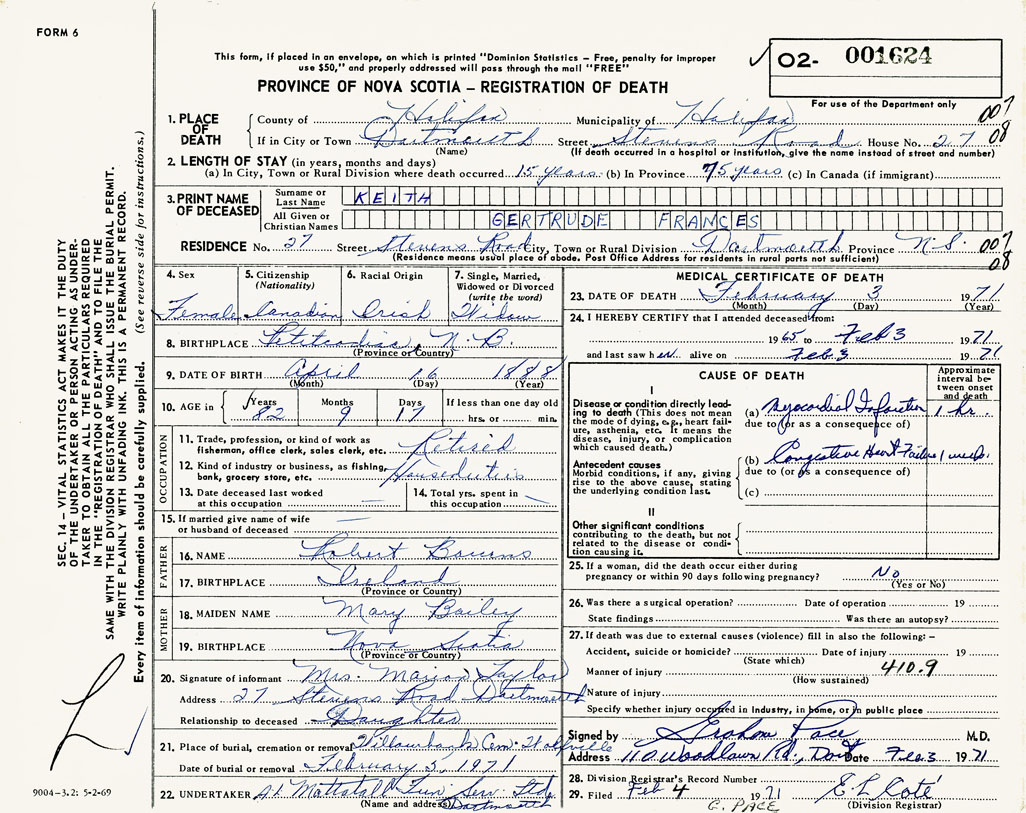 FORM 6
This form, if placed in an envelope, on which is printed "Dominion Statistics – Free, penalty for improper
use $50," and properly addressed will pass through the mail "FREE"
O2- 001624
For use of the Department only
PROVINCE OF NOVA SCOTIA – REGISTRATION OF DEATH
1. PLACE OF DEATH
County of Halifax Municipality of Halifax 007
If in City or Town Dartmouth Street Stevens Road House No. 27 08
(Name) (If death occurred in a hospital or institution, give the name instead of street and number)
2. LENGTH OF STAY (in years, months and days)
(a) In City, Town or Rural Division where death occurred 15 years (b) In Province 75 years (c) In Canada (if immigrant)
3. PRINT NAME OF DECEASED
Surname or Last Name KEITH
All Given or Christian Names GERTRUDE FRANCES
RESIDENCE No. 27 Street Stevens Road City, Town or Rural Division Dartmouth Province N.S. 007
(Residence means usual place of abode. Post Office Address for residents in rural parts not sufficient) 08
4. Sex
Female
5. Citizenship
(Nationality)
Canadian
6. Racial Origin
Irish
7. Single, Married,
Widowed or Divorced
(write the word)
Widow
8. BIRTHPLACE Petitcodiac, N.B.
(Province or Country)
9. DATE OF BIRTH April 16 1888
(Month) (Day) (Year)
10. AGE in Years Months Days If less than one day old
82 9 17 hrs. or min.
OCCUPATION
11. Trade, profession, or kind of work as
fisherman, office clerk, sales clerk, etc. Retired
12. Kind of industry or business, as fishing,
bank, grocery store, etc. Houseduties
13. Date deceased last worked
at this occupation —
14. Total yrs. spent in
this occupation —
15. If married give name of wife
or husband of deceased —
FATHER
16. NAME Robert
17. BIRTHPLACE Ireland
(Province or Country)
MOTHER
18. MAIDEN NAME Mary Bailey
19. BIRTHPLACE Nova Scotia
(Province or Country)
20. Signature of informant Mrs. Marion Taylor
Address 27 Stevens Road Dartmouth
Relationship to deceased Daughter
21. Place of burial, cremation or removal Willowbank Cem. Wolfville
Date of burial or removal February 5, 1971
22. UNDERTAKER A. Mattatall Fun. Serv. Ltd.
(Name and address) Dartmouth
MEDICAL CERTIFICATE OF DEATH
23. DATE OF DEATH February 3 1971
(Month) (Day) (Year)
24. I HEREBY CERTIFY that I attended deceased from:
1965 to Feb 3 1971
and last saw her alive on Feb 3 1971
CAUSE OF DEATH
Approximate
interval be-
tween onset
and death
I
Disease or condition directly lead-
ing to death (This does not mean
the mode of dying, e.g., heart fail-
ure, asthenia, etc. It means the
disease, injury, or complication
which caused death.)
(a) Myocardial Infarction 1 hr.
due to (or as a consequence of)
Antecedent causes
Morbid conditions, if any, giving
rise to the above cause, stating
the underlying condition last.
(b) Congestive Heart Failure 1 week.
due to (or as a consequence of)
(c)
II
Other significant conditions
contributing to the death, but not
related to the disease or condi-
tion causing it.
25. If a woman, did the death occur either during
pregnancy or within 90 days following pregnancy? No
(Yes or No)
26. Was there a surgical operation? Date of operation 19
State findings Was there an autopsy?
27. If death was due to external causes (violence) fill in also the following: –
Accident, suicide or homicide? Date of injury 19
(State which)
Manner of injury 410.9
(How sustained)
Nature of injury
Specify whether injury occurred in industry, in home, or in public place
Signed by Graham Pace, M.D.
Address 110 Woodlawn Rd., Dart Date Feb 3 1971
28. Division Registrar's Record Number
29. Filed Feb 4 1971 E L Coté
G. PACE (Division Registrar)
SEC. 14 – VITAL STATISTICS ACT MAKES IT THE DUTY
OF THE UNDERTAKER OR PERSON ACTING AS UNDER-
TAKER TO OBTAIN ALL THE PARTICULARS REQUIRED
IN THE "REGISTRATION OF DEATH" AND TO FILE THE
SAME WITH THE DIVISION REGISTRAR WHO SHALL ISSUE THE BURIAL PERMIT.
WRITE PLAINLY WITH UNFADING INK. THIS IS A PERMANENT RECORD.
Every item of information should be carefully supplied. (See reverse side for instructions.)
9004-3.2: 5-2-69